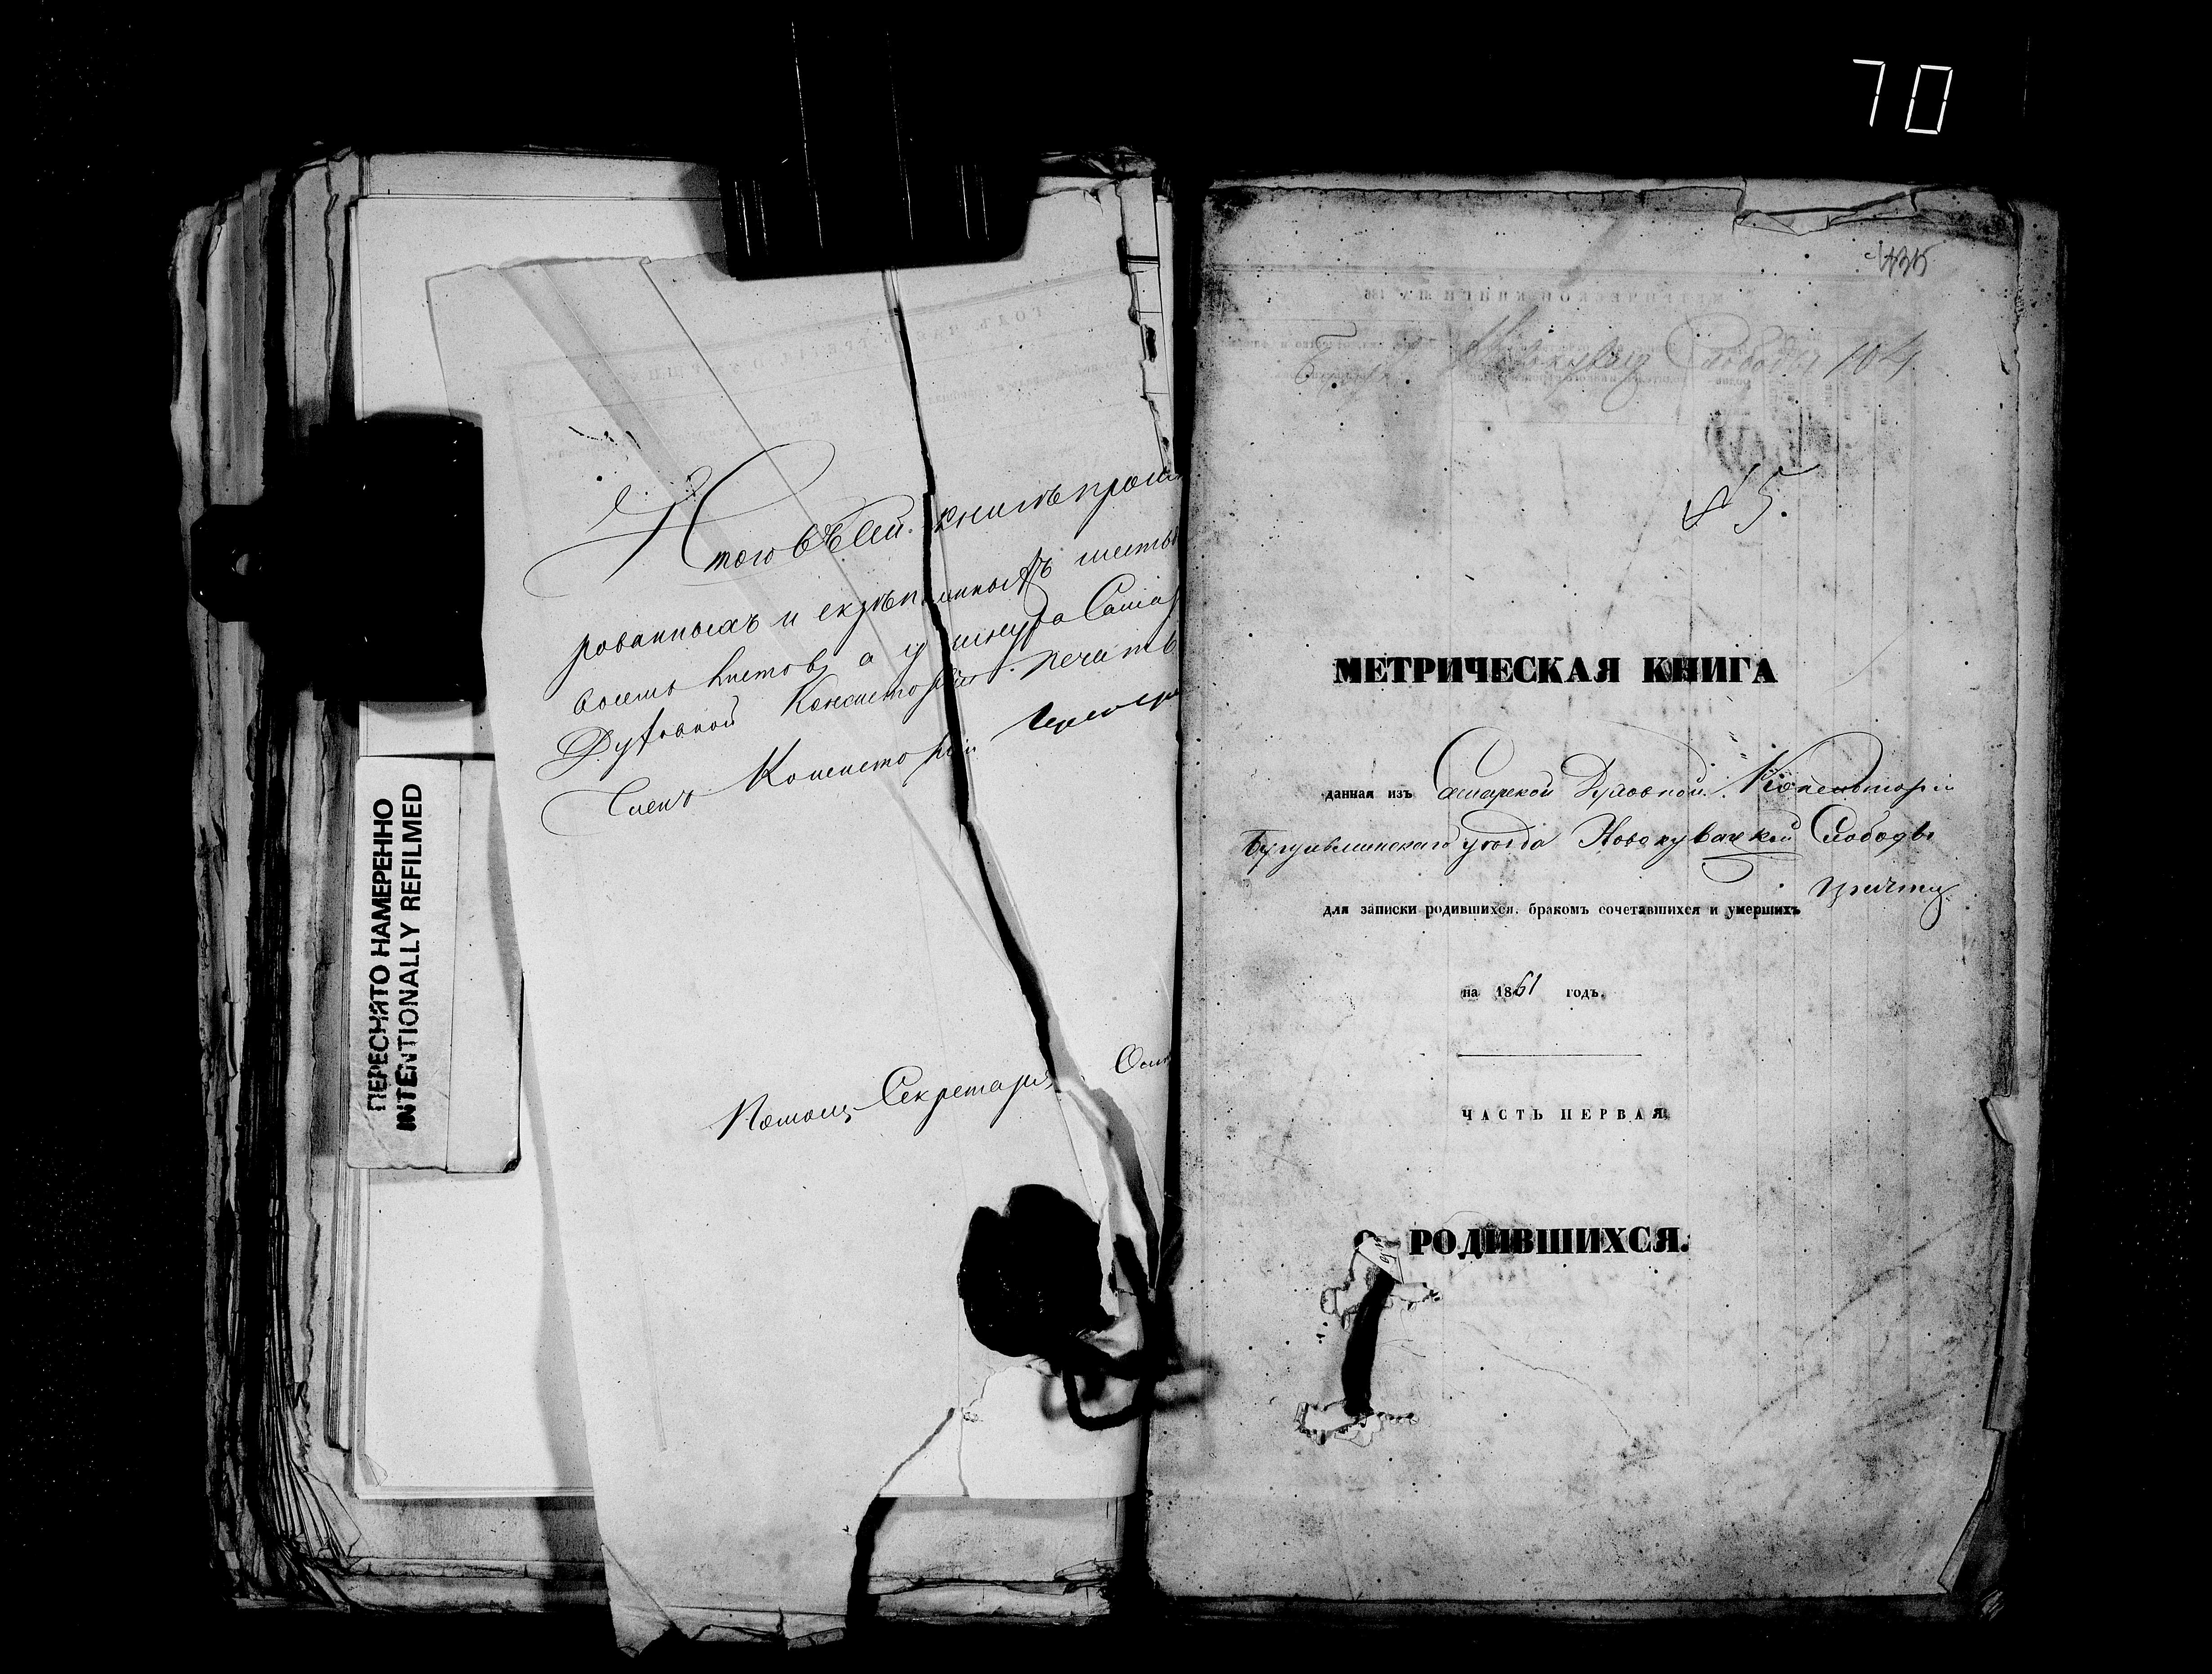 70
Итого въ сей книгѣ прошну
рованныхъ и скрѣпленныхъ шесть
восемь листовъ, а у шнура Самар
Духовной Консисторіи печать
Членъ Консисторіи
Помощ. Секретаря
ПЕРЕСНЯТО НАМЕРЕННО
INTENTIONALLY REFILMED
435
Слобода 104
№ 5.
МЕТРИЧЕСКАЯ КНИГА
данная изъ Самарской Духовной Консисторіи
Бугульминскаго уѣзда Новокувацкой Слободы
причту
для записки родившихся, бракомъ сочетавшихся и умершихъ
на 1861 годъ.
ЧАСТЬ ПЕРВАЯ
О РОДИВШИХСЯ.